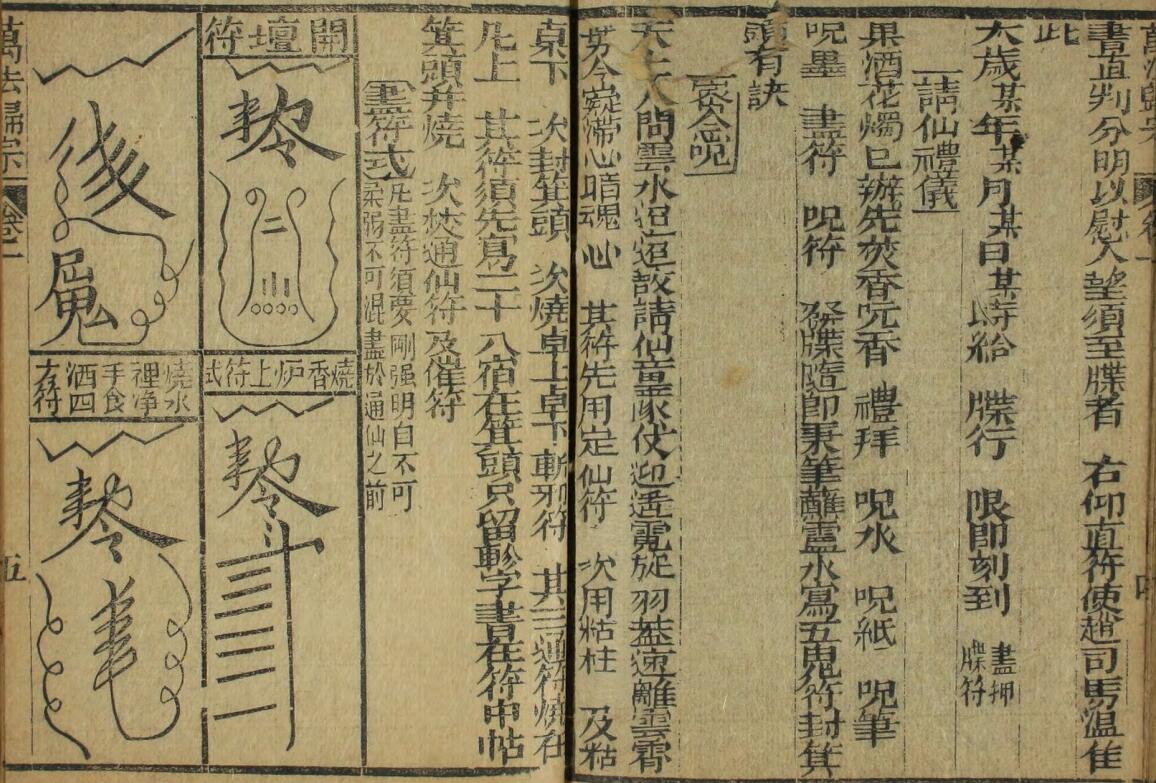 書直判分明以慰人望須至牒者 右仰直符使趙司馬溫佳
此
太歲某年某月某日某時給 牒行 限即刻到 畫押牒符
請仙禮儀
果酒花燭已辦先焚香咒香 禮拜 咒水 咒紙 咒筆
咒墨 畫符 咒符 發牒隨即秉筆蘸靈水寫五鬼符封箕
頭有訣
念咒
天上人間雲水迢迢故請仙童隊仗迎 霓旌羽蓋速離雲霄
心暗魂心 其符先用定仙符 次用粘柱 及粘
桌下 次封箕頭 次燒卓上卓下斬邪符 其三通符燒在
凡上 其符須先寫二十八宿在箕頭只留軫字書在符中帖
箕頭并燒 次焚通仙符及催符
畫符式
凡畫符須要剛强明白不可
柔弱不可混畫於通仙之前
開壇符
燒香炉上符式
燒水裡净手食酒四方符
萬法歸宗 卷二
五